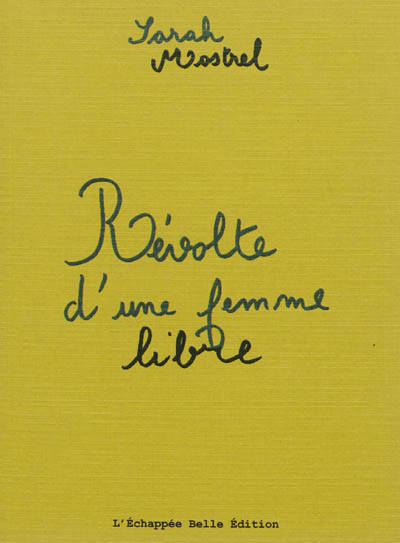 Sarah
Mostrel
Révolte
d'une femme
libre
L'Échappée Belle Édition